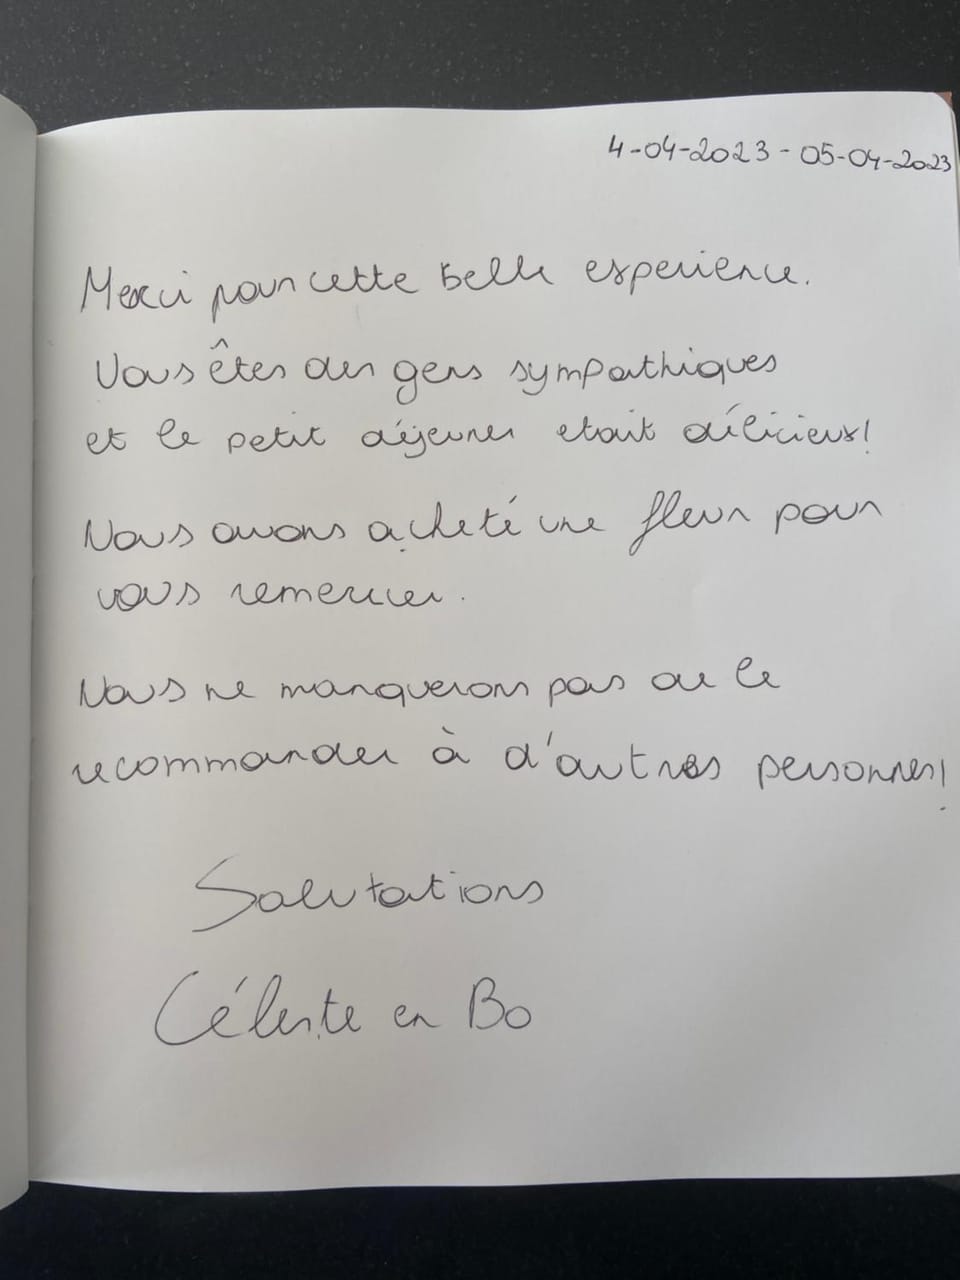 4-04-2023 - 05-04-2023
Merci pour cette belle esperience.
Vous êtes des gens sympathiques
et le petit déjeuner etait délicieux!
Nous avons acheté une fleur pour
vous remercier.
Nous ne manquerons pas de le
recommander à d'autres personnes!
Salutations
Céleste en Bo